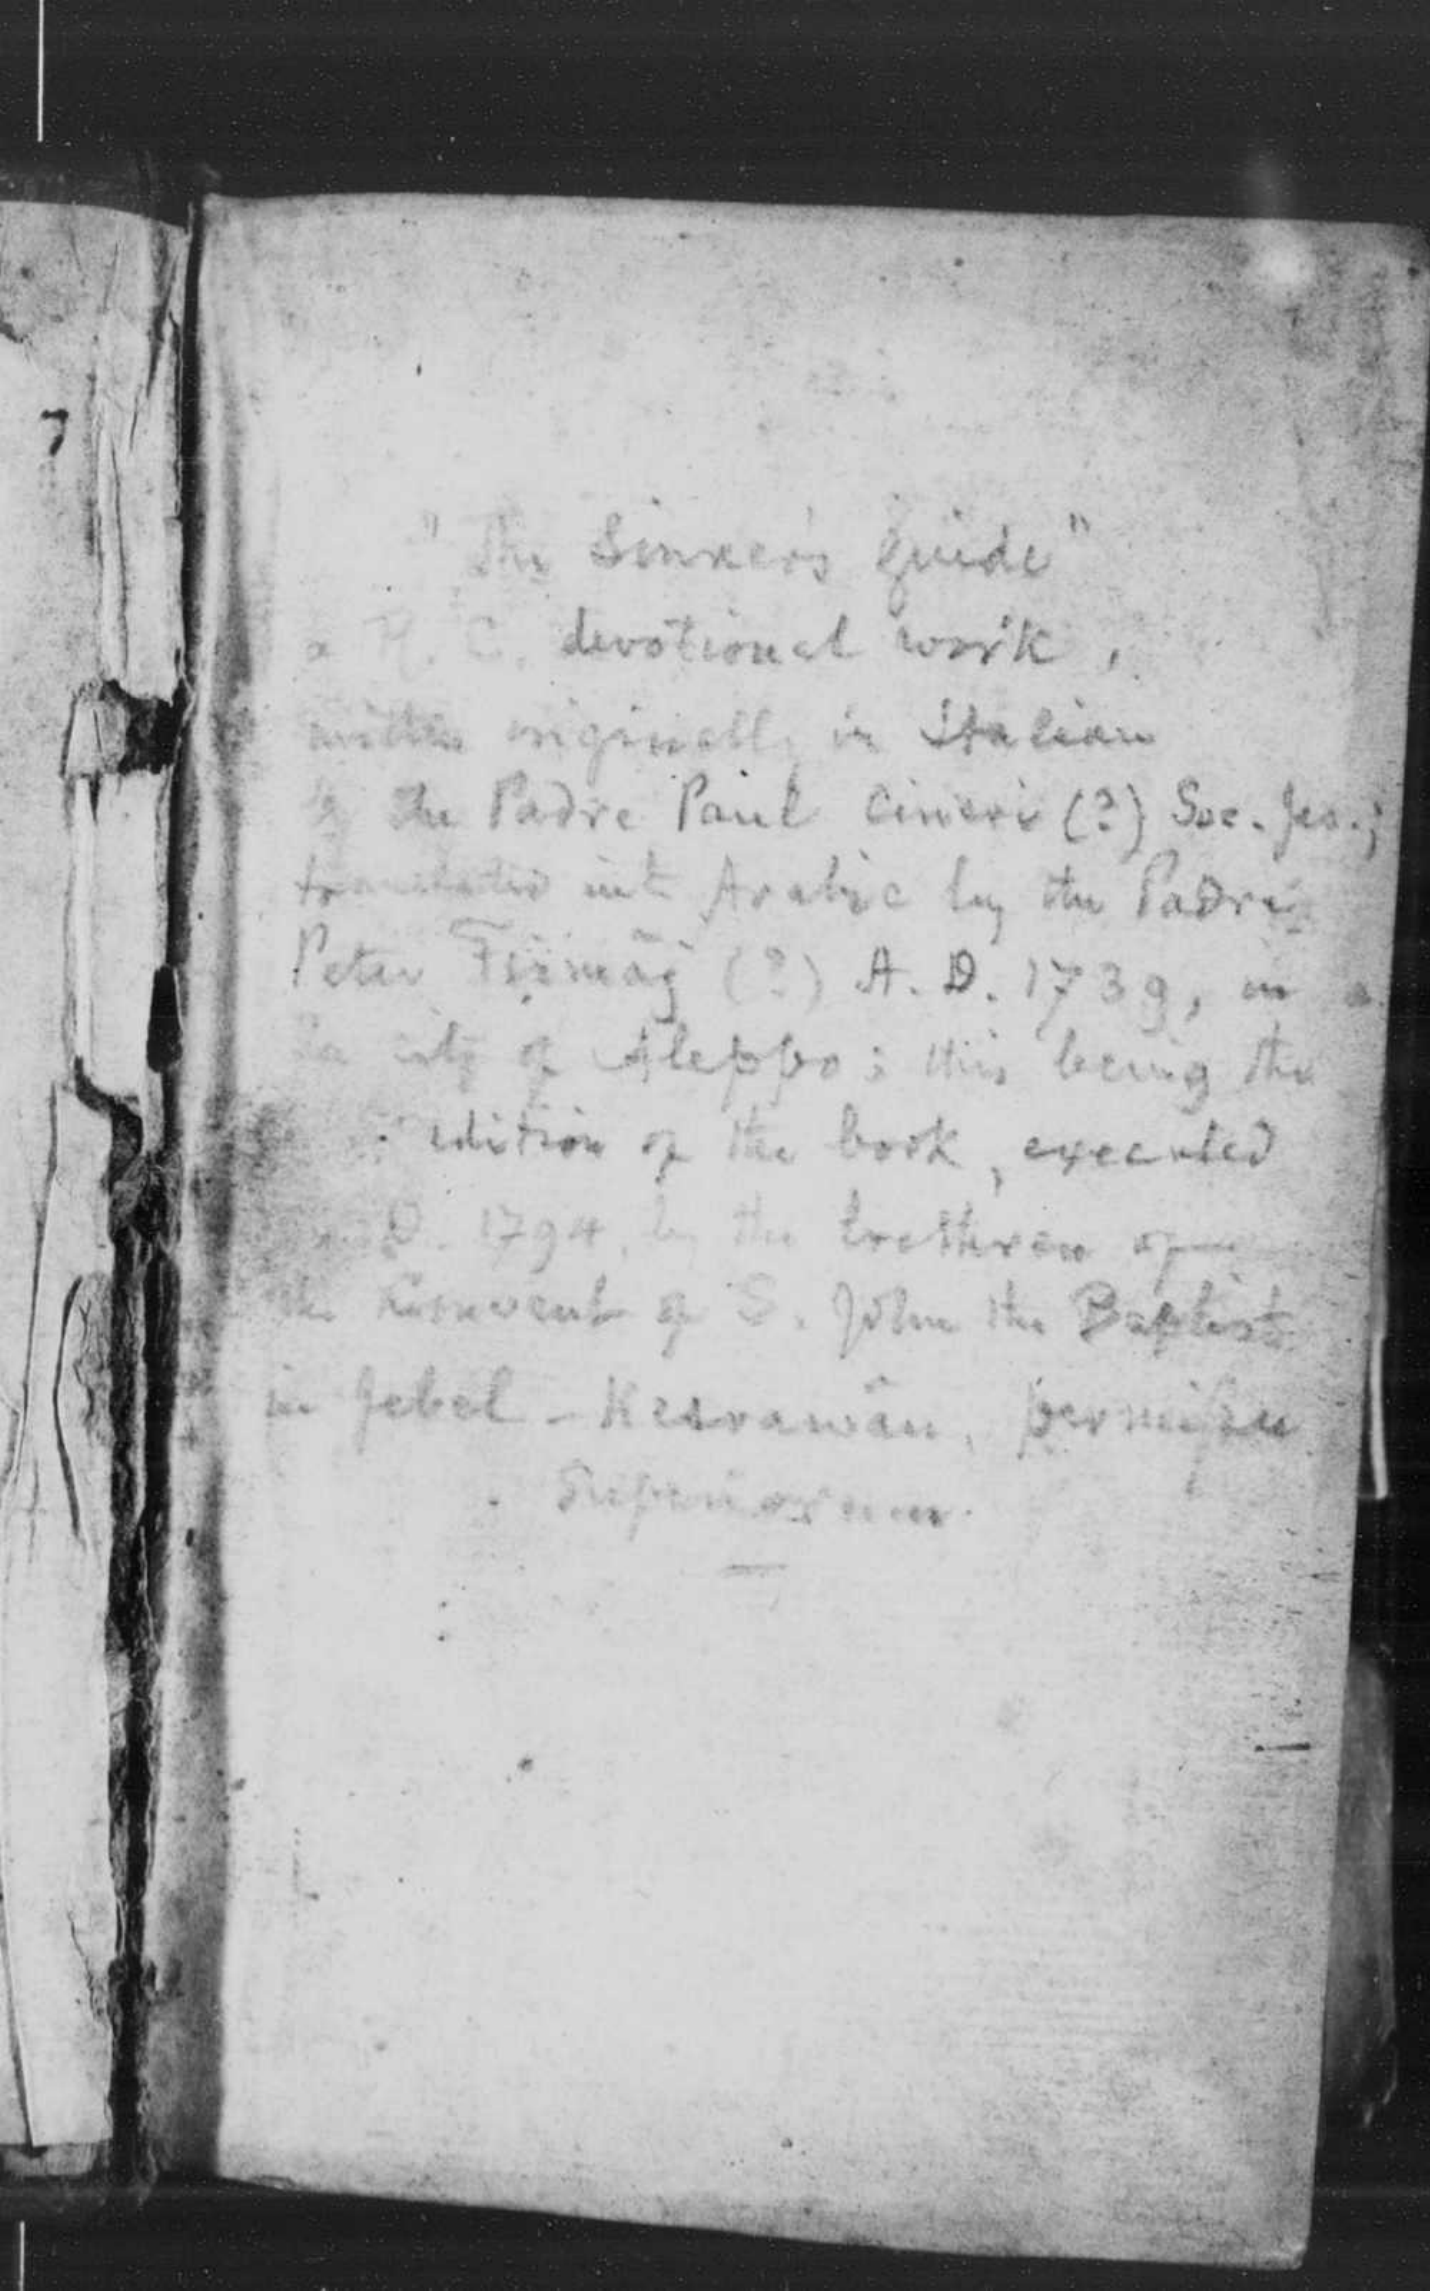 7
"The Sinner's Guide"
a R. C. devotional work,
written originally in Italian
by the Padre Paul Cineri (?) Soc. Jes.;
translated into Arabic by the Padre
Peter (?) A. D. 1739, in
city of Aleppo; this being the
edition of the book, executed
D. 1794, by the brethren of
the Convent of S. John the Baptist
in Jebel-Kesrawân, permissu
Superiorum.